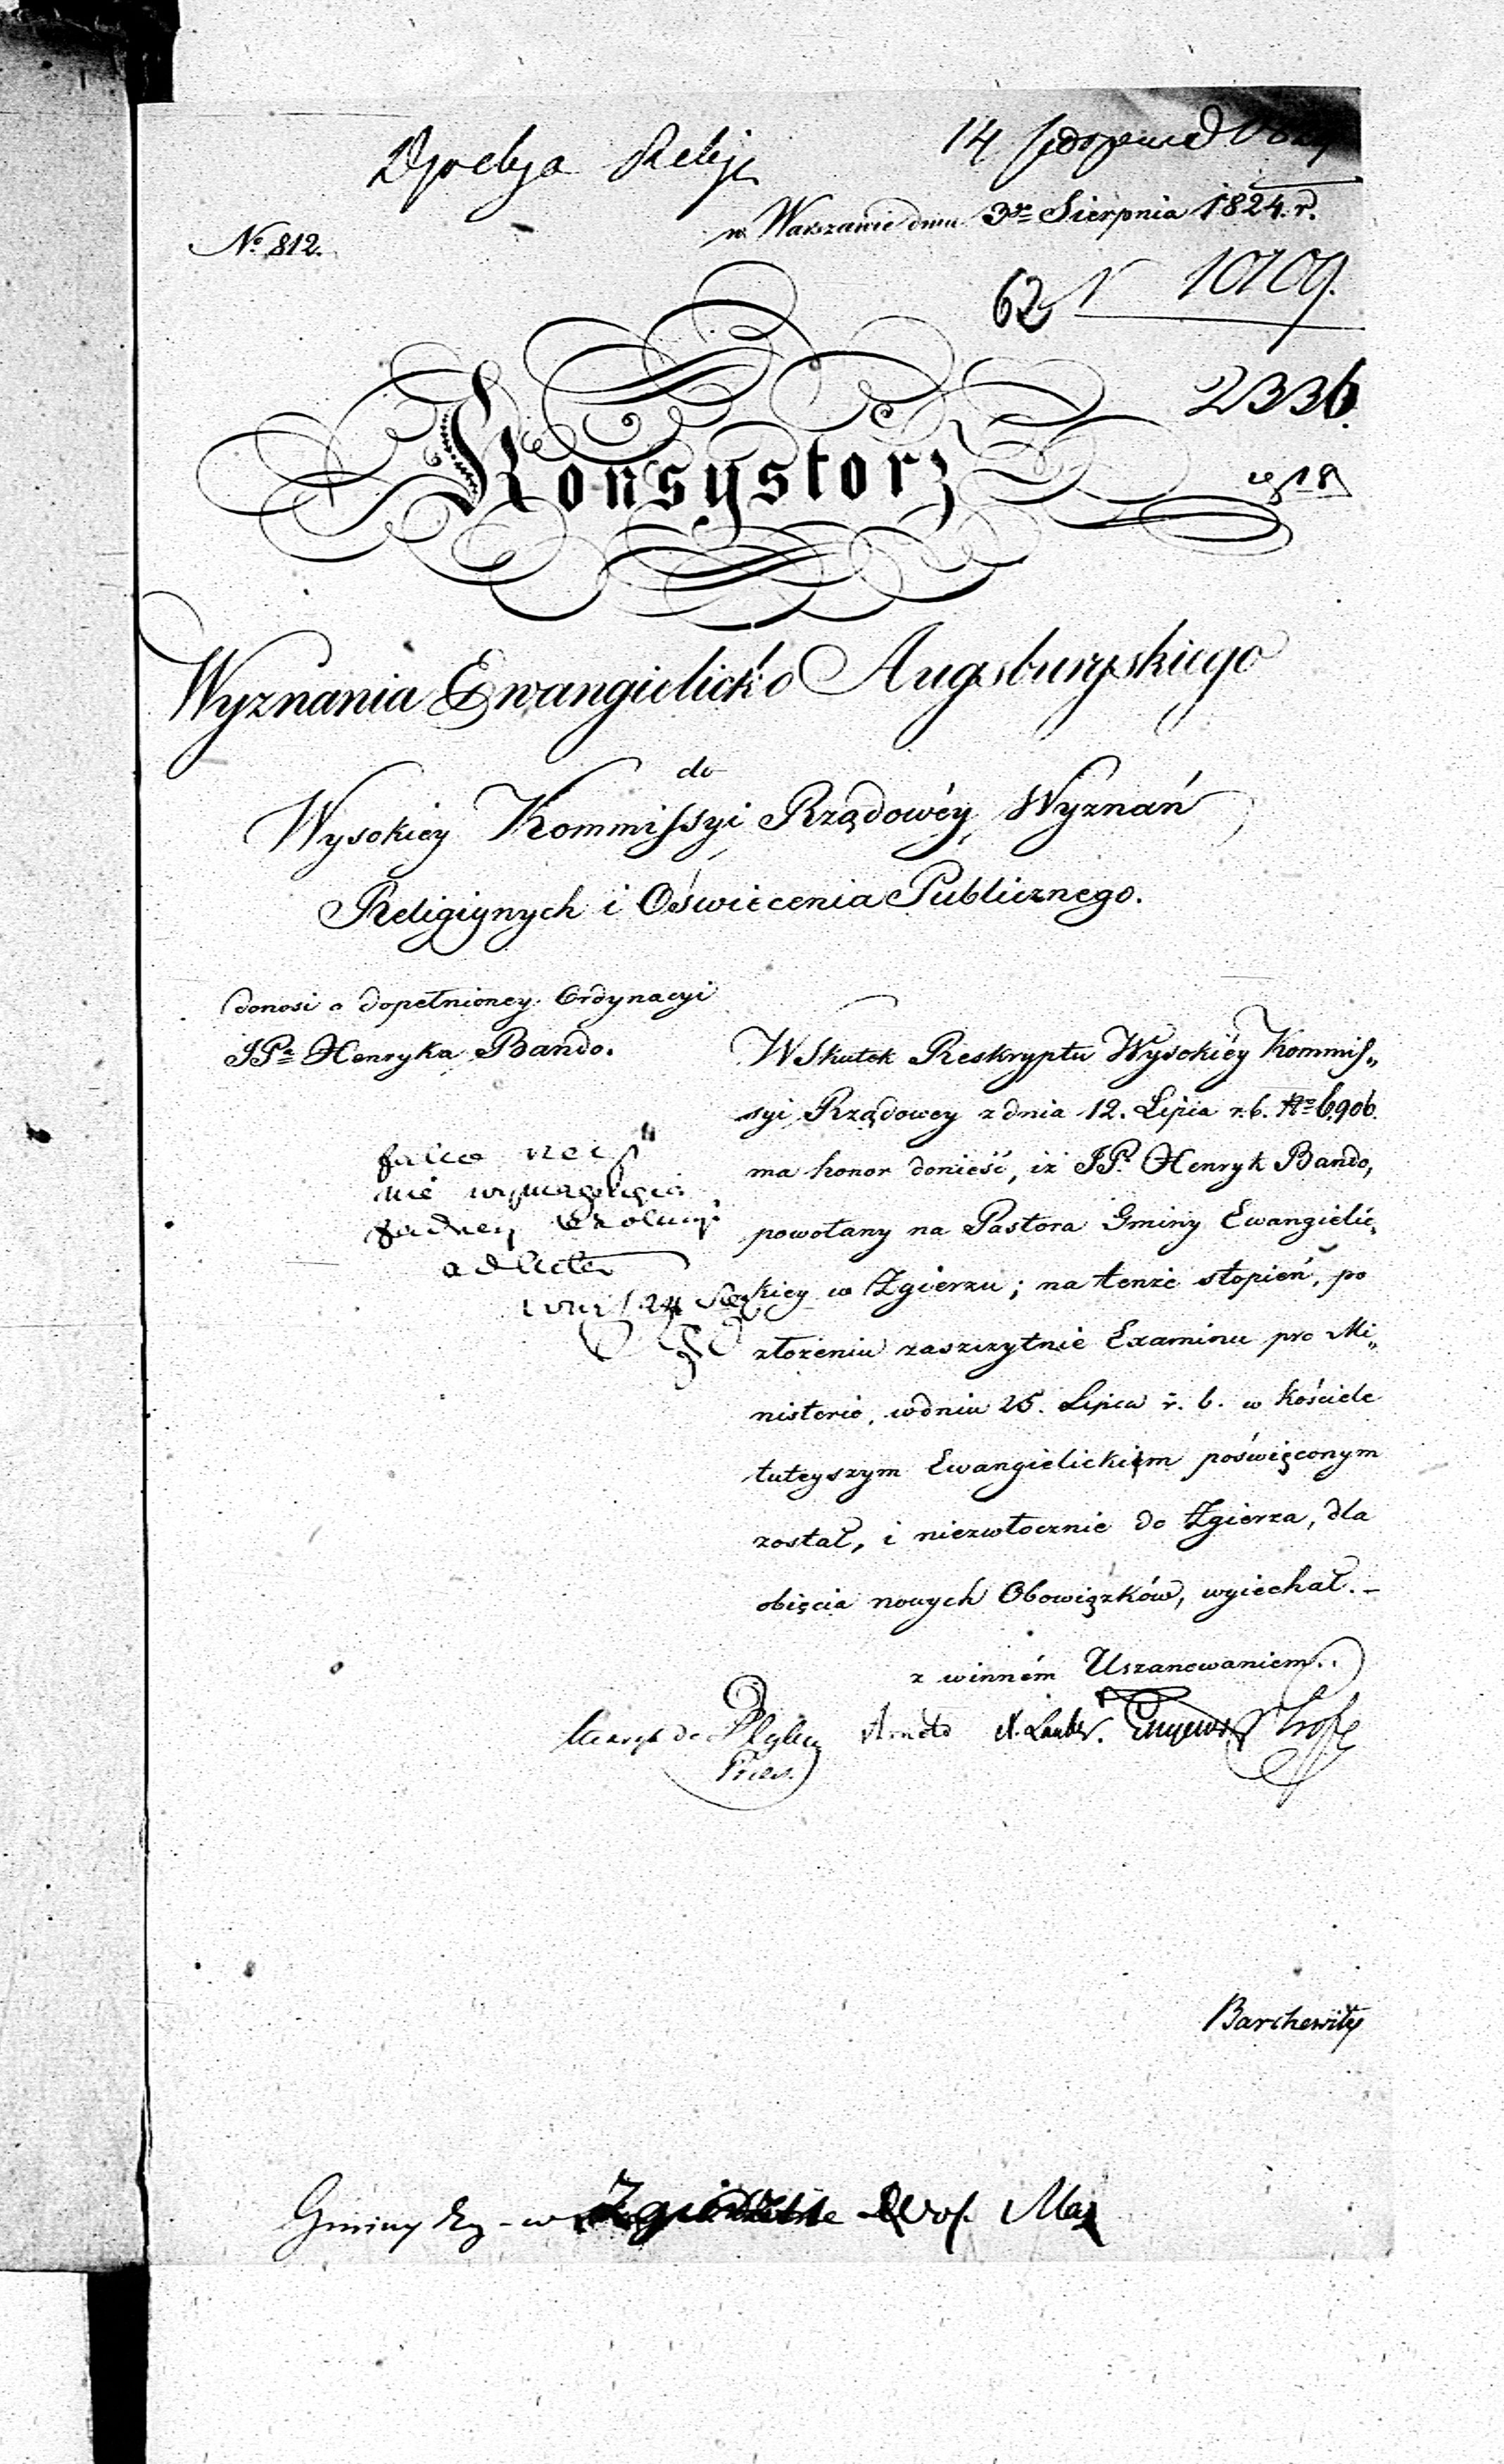 Dyrekcya Religij
14
w Warszawie dnia 3go Sierpnia 1824. r.
No 812.
62 10109.
2336.
Konsystorz
Wyznania Ewangielick'o Augsburgskiego
do
Wysokiey Kommissyi Rządowéy Wyznań
Religiynych i Oświecenia Publicznego.
donosi o dopełnioney Ordynacyi
JPa Henryka Bando.
W Skutek Reskryptu Wysokiéy Kommis„
syi Rządowey z dnia 12. Lipca r. b. No 6,906.
ma honor donieść, iż JP. Henryk Bando,
powołany na Pastora Gminy Ewangielic„
kiey w Zgierzu; na tenże stopień, po
złożeniu zaszczytnie Examinu pro Mi„
nisterio, w dniu 25. Lipca r. b. w kościele
tuteyszym Ewangielickim poświęconym
został, i niezwłocznie do Zgierza, dla
obięcia nowych Obowiązków, wyiechał. –
z winném Uszanowaniem.
nie wymagaiąca
żadney
ad acta
Prezes.
Barchewitz
Gminy Ew - w Zgierzu Woj. Maz